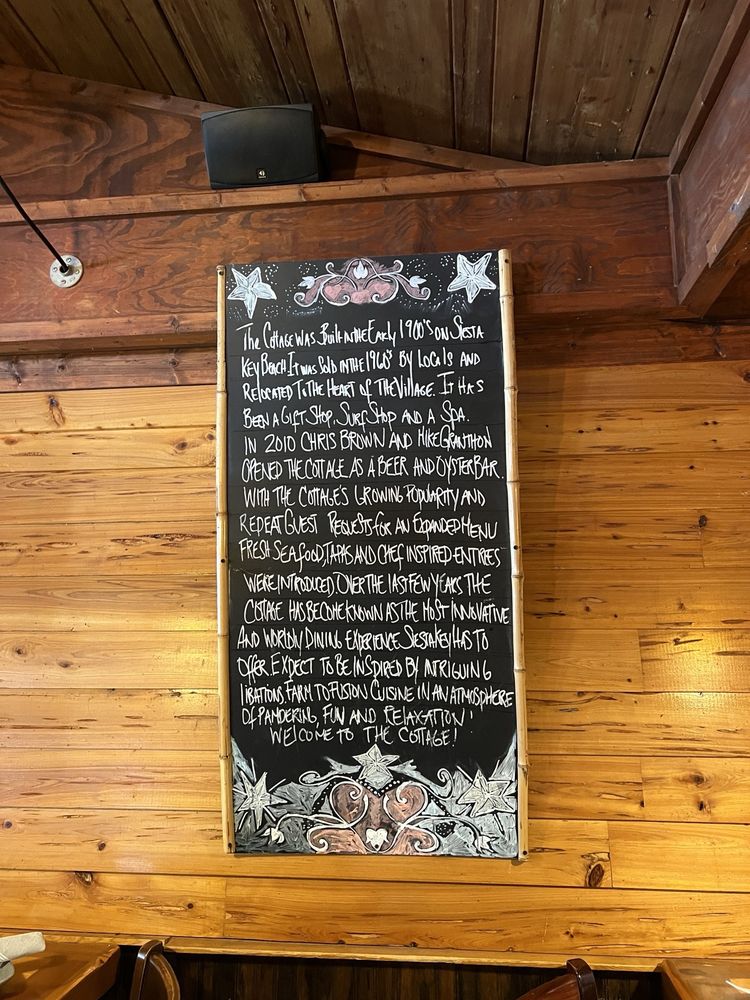 The Cottage was Built in the Early 1900's on Siesta
Key Beach. It was Sold in the 1960's by Locals and
Relocated To the Heart of The Village. It Has
Been a Gift Shop, Surf Shop and a Spa.
In 2010 Chris Brown and Mike Granthon
opened the Cottage as a Beer and Oyster Bar.
With the Cottage's Growing Popularity and
Repeat Guest Requests for an Expanded Menu
Fresh Seafood, Tapas and Chef Inspired Entrees
were introduced. Over the last few years the
Cottage has become known as the most innovative
and worldly dining experience Siesta Key Has to
offer. Expect to be inspired by intriguing
libations, Farm to Fusion Cuisine in an atmosphere
of pampering, fun and relaxation!
Welcome to The Cottage!